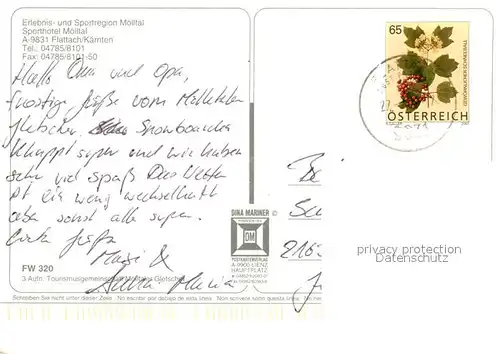 Erlebnis- und Sportregion Mölltal
Sporthotel Mölltal
A-9831 Flattach/Kärnten
Tel.: 04785/8101
Fax: 04785/8101-50
Hallo Oma und Opa,
frostige Grüße vom Mölltaler
Gletscher. Snowboarden
klappt super und wir haben
sehr viel Spaß. Das Wetter
ist ein wenig wechselhaft
aber sonst alles super.
Liebe Grüße
&
Anna Maria
FW 320
3 Aufn. Tourismusgemeinschaft Mölltaler Gletscher
Schreiben Sie nicht unter dieser Zeile
No escribir por debajo de esta linea.
Non scrivere sotto questa linea.
DINA MARINER
DM
POSTKARTENVERLAG
A-9900 LIENZ
HAUPTPLATZ
65
GEWÖHNLICHER SCHNEEBALL
ÖSTERREICH
216
privacy protection
Datenschutz